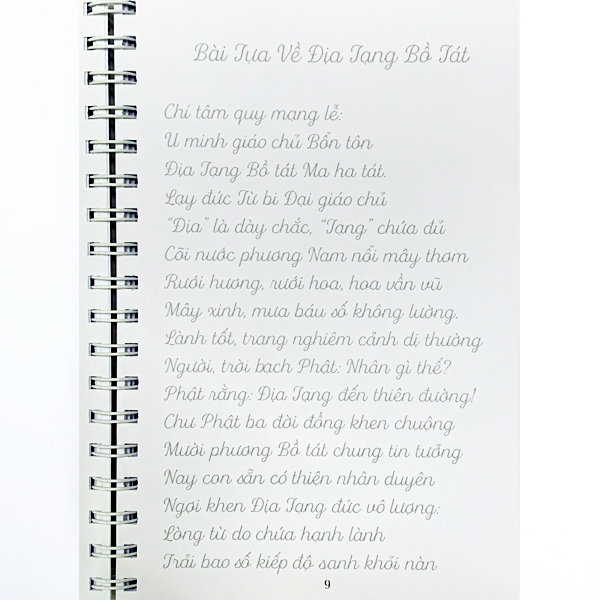 Bài Tựa Về Địa Tạng Bồ Tát
Chí tâm quy mạng lễ:
U minh giáo chủ Bổn tôn
Địa Tạng Bồ tát Ma ha tát.
Lạy đức Từ bi Đại giáo chủ
“Địa” là dày chắc, “Tạng” chứa đủ
Cõi nước phương Nam nổi mây thơm
Rưới hương, rưới hoa, hoa vần vũ
Mây xinh, mưa báu số không lường.
Lành tốt, trang nghiêm cảnh dị thường
Người, trời bạch Phật: Nhân gì thế?
Phật rằng: Địa Tạng đến thiên đường!
Chư Phật ba đời đồng khen chuộng
Mười phương Bồ tát chung tin tưởng
Nay con sẵn có thiện nhân duyên
Ngợi khen Địa Tạng đức vô lượng:
Lòng từ do chứa hạnh lành
Trải bao số kiếp độ sanh khỏi nàn
9